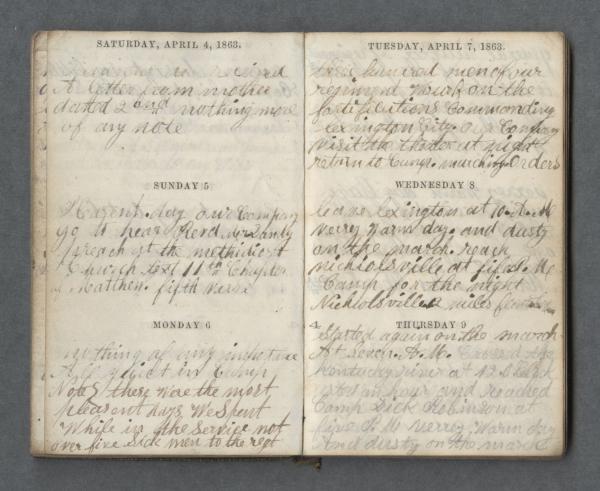 SATURDAY, APRIL 4, 1863.
received
A letter from mother
dated 2 nothing more
of any note
SUNDAY 5
day our Company
go to hear Revd.
preach at the methodist
Church text 11th Chapter
Matthew. fifth verse
MONDAY 6
nothing of any
All quiet in Camp
Note these ware the most
pleasent days We Spent
While in the Service not
over five Sick men to the regt
TUESDAY, APRIL 7, 1863.
hundred men of our
regiment Work on the
fortifications Commanding
Lexington City. Our Company
visit the theater at night
return to Camp. marching Orders
WEDNESDAY 8
leave lexington at 10. A. M
verry warm day. and dusty
on the march. reach
nicholsville at P. M.
Camp for the night
Nicholsville miles
THURSDAY 9
Started again on the march
At Seven A. M. Crossed the
Kentucky river at 12
an hour and reached
Camp Dick Robinson at
five P. M verrey Warm day
And dusty on the march